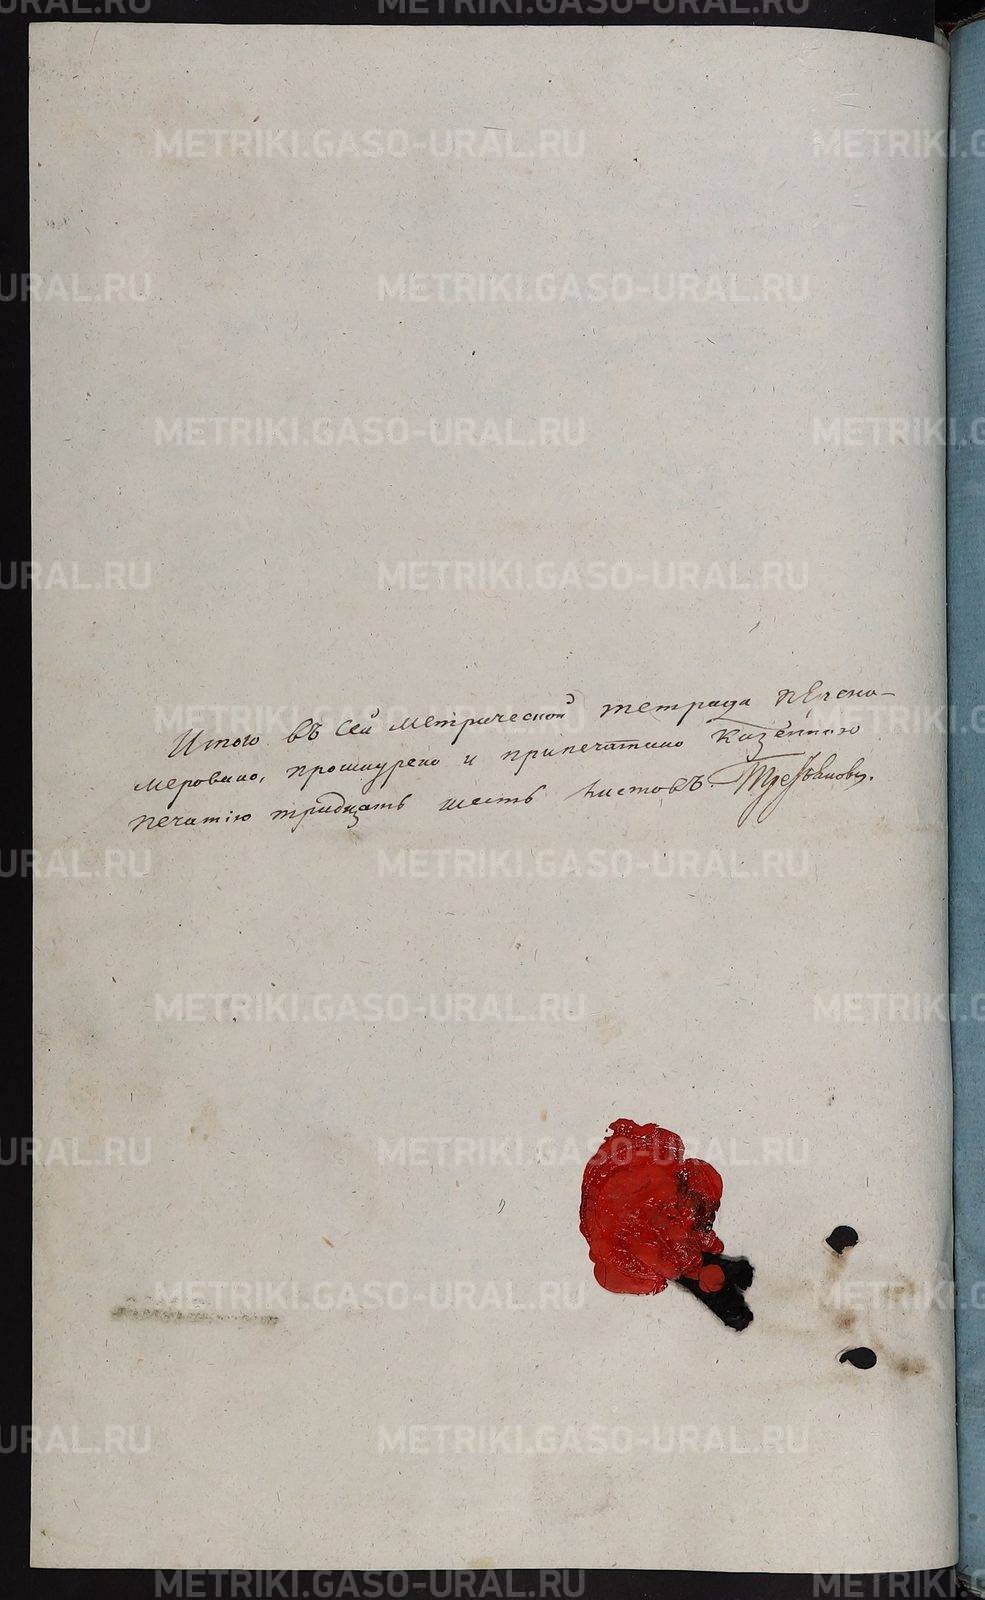 Итого въ сей метрической тетрада перено-
меровано, прошнурено и припечатано казенною
печатью тридцать шесть листовъ.
METRIKI.GASO-URAL.RU